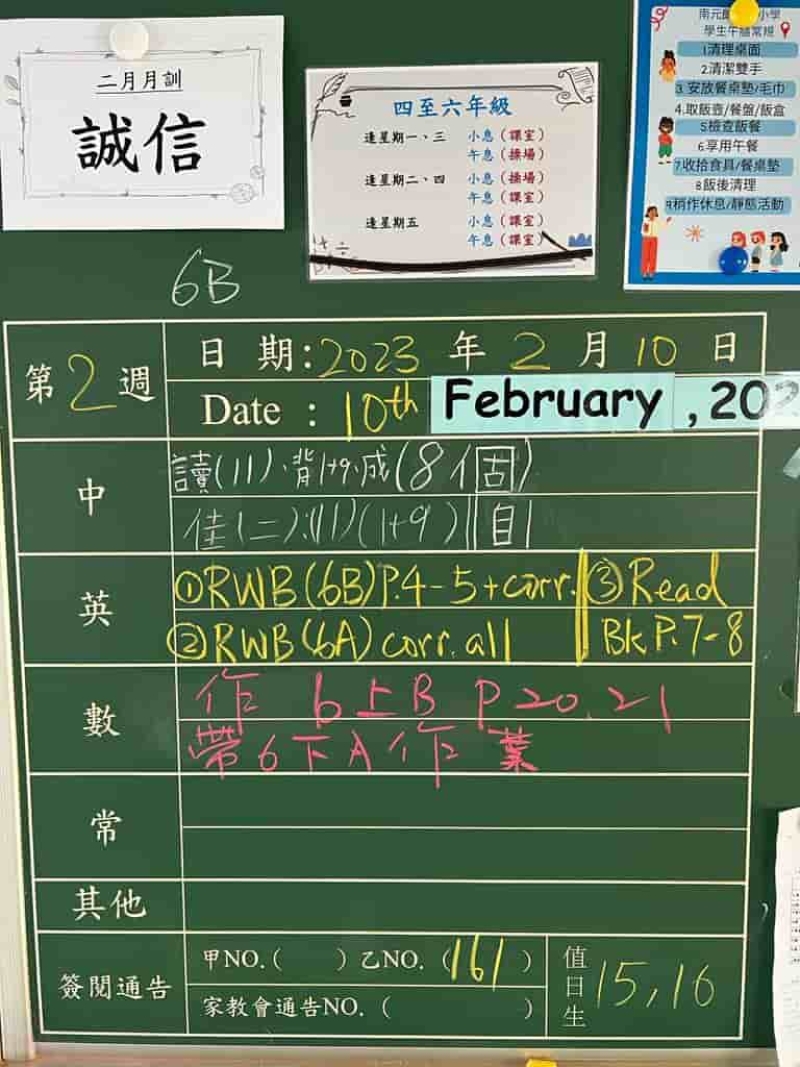 二月月訓
誠信
四至六年級
逢星期一、三 小息（課室）
午息（操場）
逢星期二、四 小息（操場）
午息（課室）
逢星期五 小息（課室）
午息（課室）
小學
學生午膳常規
1清理桌面
2清潔雙手
3.安放餐桌墊/毛巾
4.取飯壺/餐盤/飯盒
5檢查飯餐
6享用午餐
7.收拾食具/餐桌墊
8飯後清理
9稍作休息/靜態活動
6B
第2週
日期:2023年2月10日
Date : 10th February ,202
中
讀(11)、背1+9、成(8個固)
佳(二):(11)(1+9)||自|
英
①RWB(6B)P.4-5+corr.
②RWB(6A)corr.all
③Read
Bk P.7-8
數
作 6上B P20.21
帶6下A作業
常
其他
簽閱通告
甲NO.( )乙NO.(161)
家教會通告NO.( )
值日生 15,16